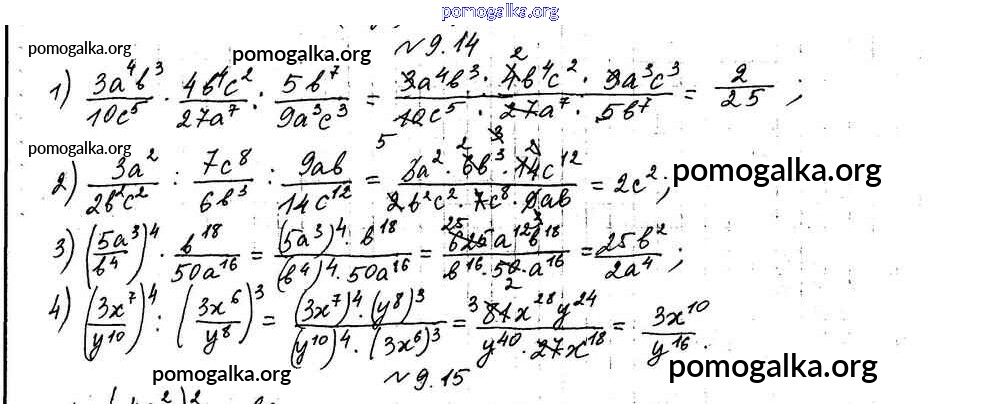 pomogalka.org
№ 9.14
pomogalka.org pomogalka.org
1) 3a⁴b³/10c⁵ · 4b⁴c²/27a⁷ : 5b⁷/9a³c³ = 3a⁴b³ · 4b⁴c² · 9a³c³/10c⁵ · 27a⁷ · 5b⁷ = 2/25 ;
pomogalka.org
2) 3a²/2b²c² : 7c⁸/6b³ : 9ab/14c¹² = 3a² · 6b³ · 14c¹²/2b²c² · 7c⁸ · 9ab = 2c² ;
pomogalka.org
3) (5a³/b⁴)⁴ · b¹⁸/50a¹⁶ = (5a³)⁴ · b¹⁸/(b⁴)⁴ · 50a¹⁶ = 625a¹²b¹⁸/b¹⁶ · 50 · a¹⁶ = 25b²/2a⁴ ;
pomogalka.org
4) (3x⁷/y¹⁰)⁴ : (3x⁶/y⁸)³ = (3x⁷)⁴ · (y⁸)³/(y¹⁰)⁴ · (3x⁶)³ = 81x²⁸y²⁴/y⁴⁰ · 27x¹⁸ = 3x¹⁰/y¹⁶ .
pomogalka.org pomogalka.org
№ 9.15